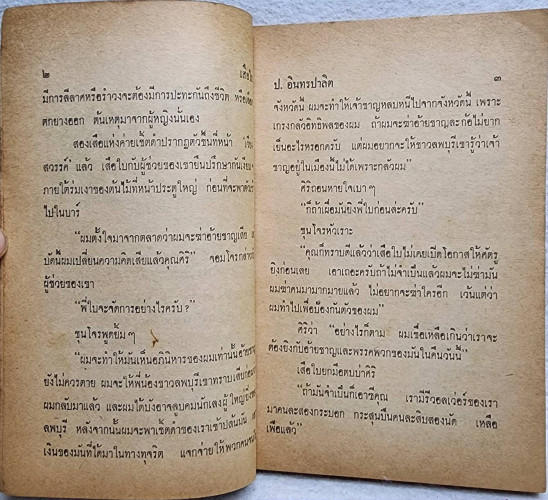 ๒
เสือใบ
มีการลีลาศหรือรำวงจะต้องมีการปะทะกันถึงชีวิต หรือเลือด
ตกยางออก ต้นเหตุมาจากผู้หญิงนั่นเอง
สองเสือแห่งค่ายเช้ตดำปรากฏตัวขึ้นที่หน้า
สวรรค์ แล้ว เสือใบกับผู้ช่วยของเขายืนปรึกษากันเงียบ
ภายใต้ร่มเงาของต้นไม้ที่หน้าประตูใหญ่ ก่อนที่จะพาตัว
ไปในบาร์
"ผมตั้งใจมาจากตลาดว่าผมจะฆ่าอ้ายชาญเสีย
บัดนี้ผมเปลี่ยนความคิดเสียแล้วคุณคิริ" จอมโจรกล่าว
ผู้ช่วยของเขา
"พี่ใบจะจัดการอย่างไรครับ?"
ขุนโจรพูดยิ้ม ๆ
"ผมจะทำให้มันเห็นอภินิหารของผมเท่านั้นอ้ายชาญ
ยังไม่ควรตาย ผมจะให้พี่น้องชาวลพบุรีเขาทราบเสียก่อน
ผมกลับมาแล้ว และผมได้บังอาจลูบคมนักเลงผู้ใหญ่
ลพบุรี หลังจากนั้นผมจะพาเช้ตดำของเราเข้าปล้นมัน
เงินของมันที่ได้มาในทางทุจริต แจกจ่ายให้พวกคนจน
ป. อินทรปาลิต
๓
จังหวัดนี้ ผมจะทำให้เจ้าชาญหลบหนีไปจากจังหวัดนี้ เพราะ
เกรงกลัวอิทธิพลของผม ถ้าผมจะฆ่าอ้ายชาญละก้อไม่ยาก
เย็นอะไรหรอกครับ แต่ผมอยากจะให้ชาวลพบุรีเขารู้ว่าเจ้า
ชาญอยู่ในเมืองนี้ไม่ได้เพราะกลัวผม"
คิริถอนหายใจเบา ๆ
"ก็ถ้าเผื่อมันยิงพี่ใบก่อนล่ะครับ"
ขุนโจรหัวเราะ
"คุณก็ทราบดีแล้วว่าเสือใบไม่เคยเปิดโอกาสให้ศัตรู
ยิงก่อนเลย เอาเถอะครับถ้าไม่จำเป็นแล้วผมจะไม่ฆ่ามัน
ผมฆ่าคนมามากมายแล้ว ไม่อยากจะฆ่าใครอีก เว้นแต่ว่า
ผมทำไปเพื่อป้องกันตัวของผม"
คิริว่า "อย่างไรก็ตาม ผมเชื่อเหลือเกินว่าเราจะ
ต้องยิงกับอ้ายชาญและพรรคพวกของมันในคืนวันนี้"
เสือใบยกมือตบบ่าคิริ
"ถ้ามันจำเป็นก็เอาซีคุณ เรามีรีวอลเวอร์ของเรา
มาคนละสองกระบอก กระสุนปืนคนละสิบสองนัด เหลือ
เฟือแล้ว"